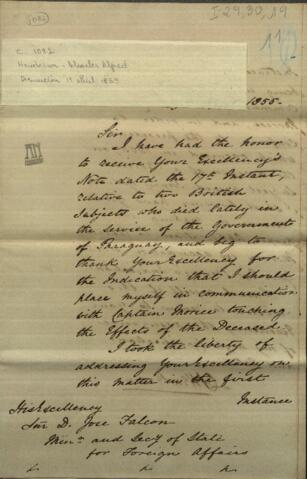 I-29,30,19
1082
C. 1082
Henderson - Charles Alfred
Asuncion 19 abril 1855
1855.
Sir
I have had the honor
to receive Your Excellency's
Note dated the 17th Instant,
relative to two British
Subjects who died lately in
the Service of the Government
of Paraguay, and beg to
thank Your Excellency for
the Indication that I should
place myself in communication
with Captain Morice touching
the Effects of the Deceased.
I took the liberty of
addressing Your Excellency on
this matter in the first
Instance
His Excellency
Sir D. Jose Falcon
Minr. and Secy of State
for Foreign Affairs